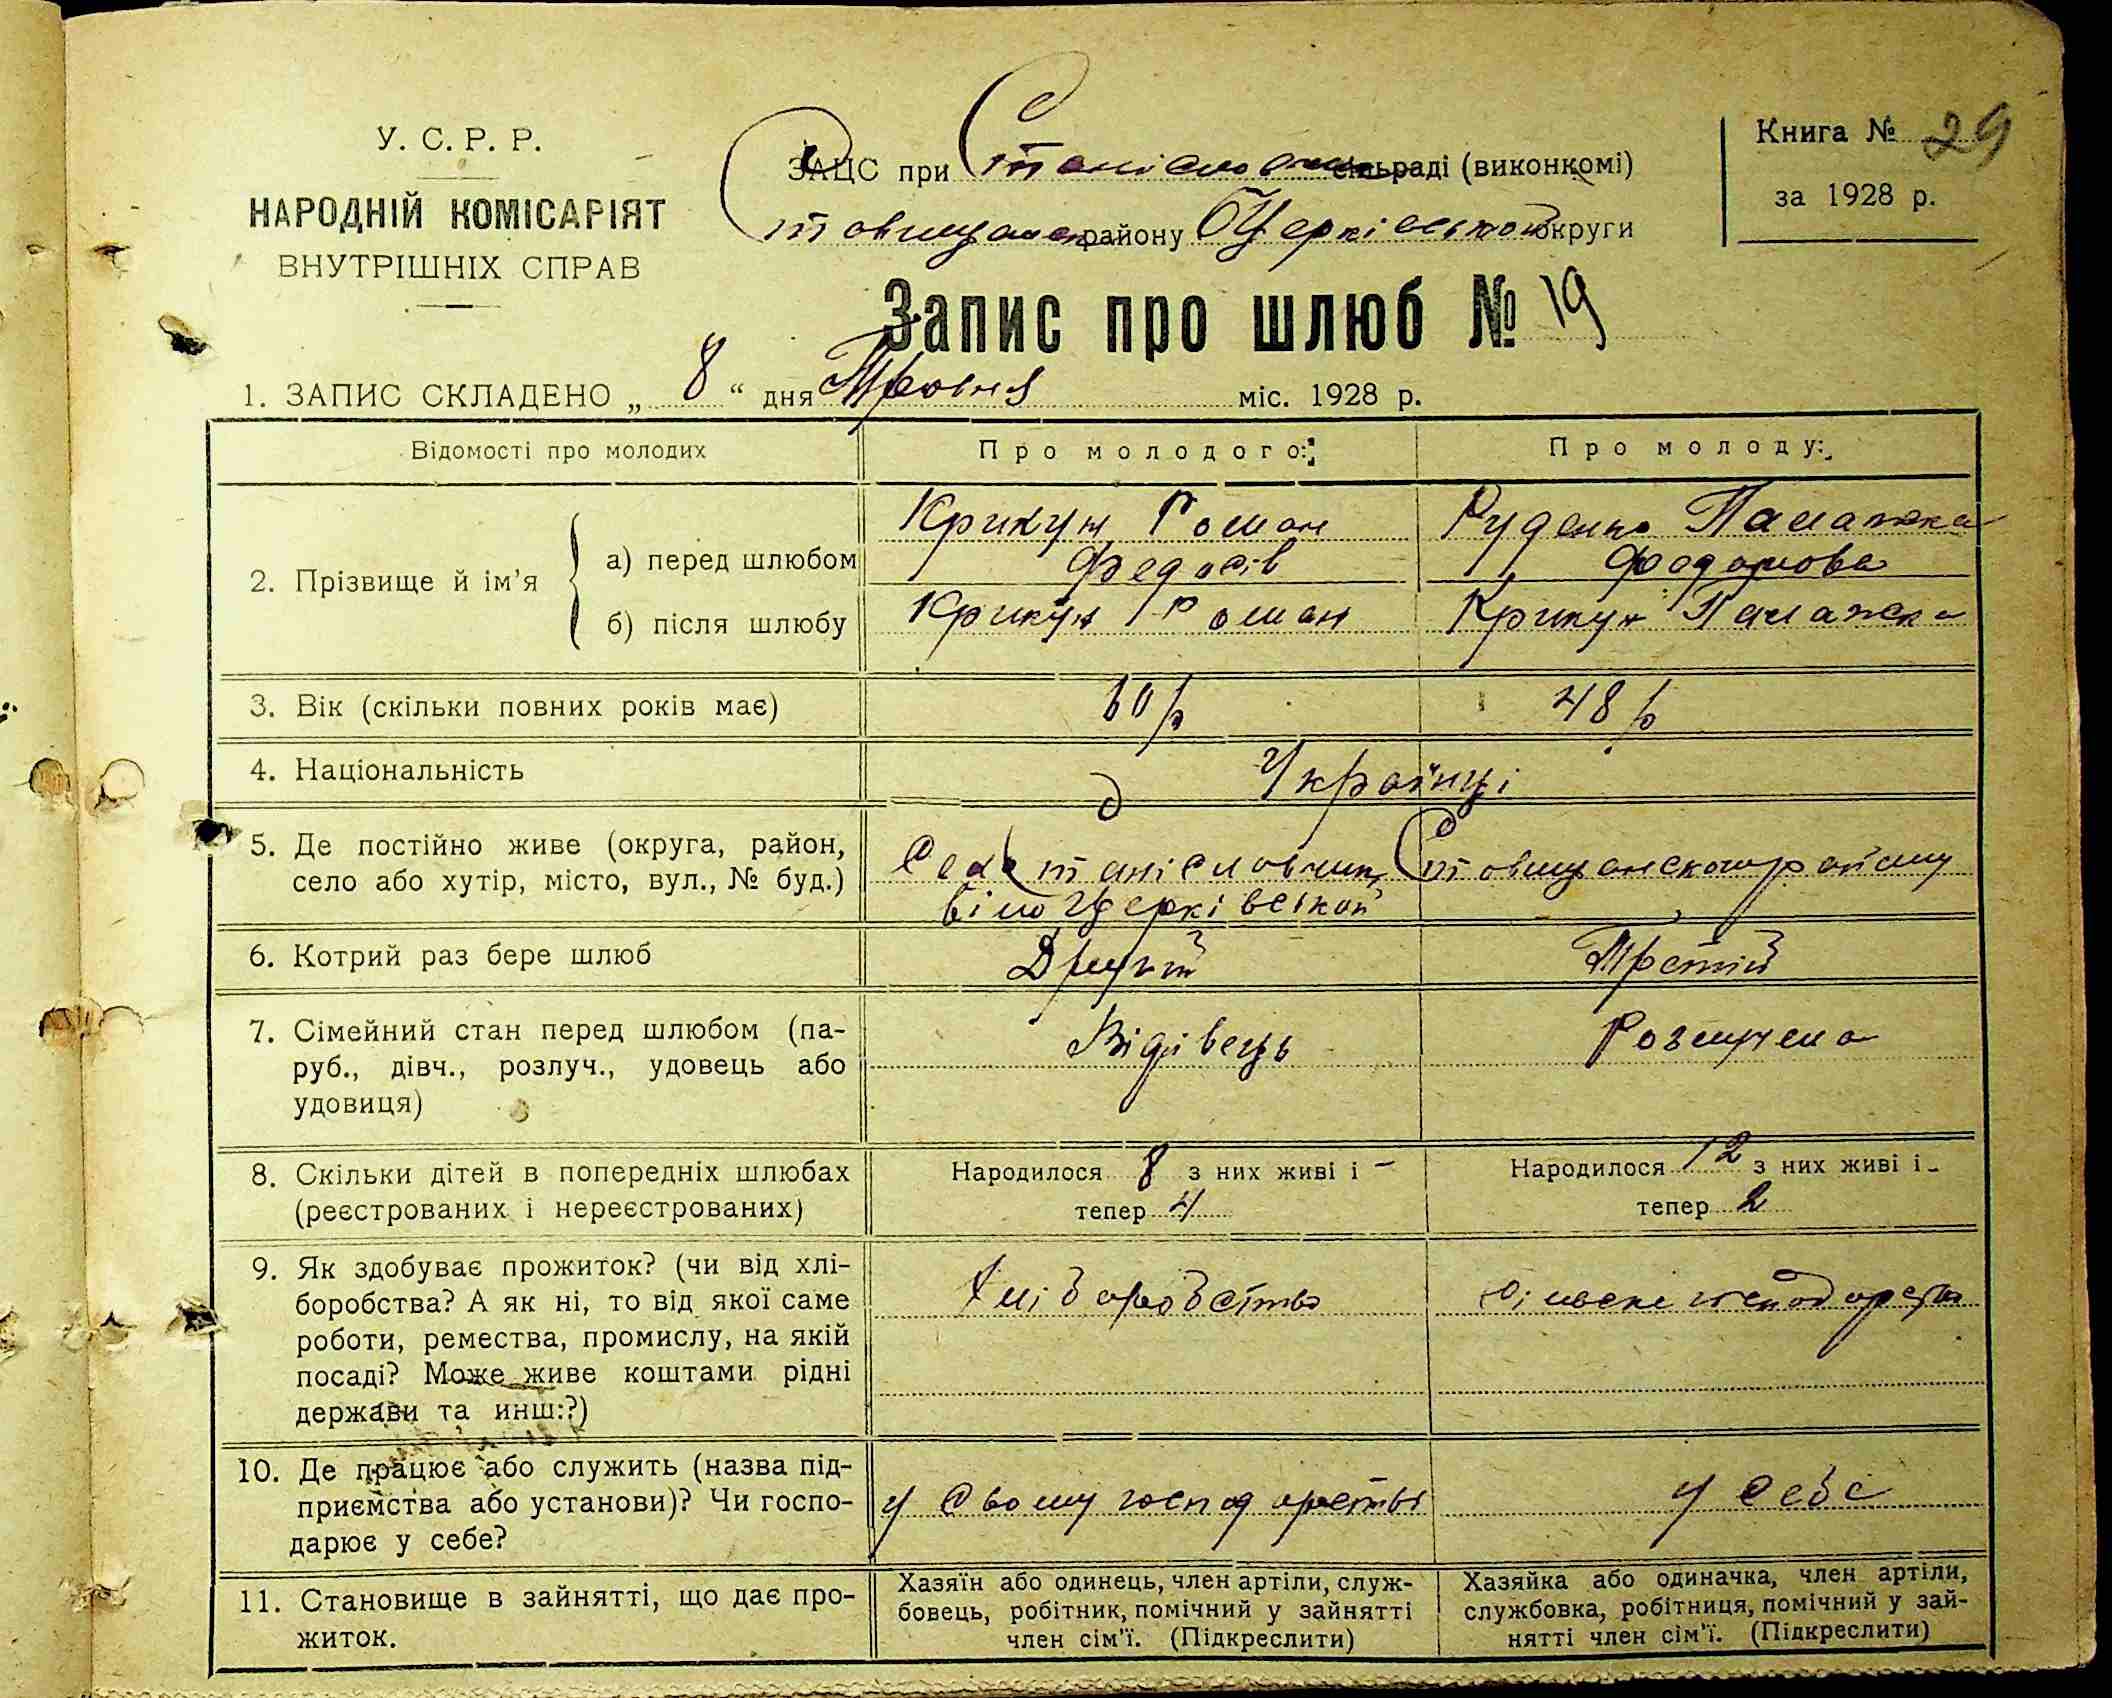 У. С. Р. Р.
НАРОДНІЙ КОМІСАРІЯТ
ВНУТРІШНІХ СПРАВ
ЗАЦС при Станіславчик сільраді (виконкомі)
Ставищанськ району БЦерківської округи
Книга № 29
за 1928 р.
Запис про шлюб № 19
1. ЗАПИС СКЛАДЕНО „ 8 “ дня Травня міс. 1928 р.
Відомості про молодих
Про молодого:
Про молоду:
2. Прізвище й ім’я
а) перед шлюбом
Крикун Роман
Федосів
Руденко Палажка
Федорова
б) після шлюбу
Крикун Роман
Крикун Палажка
3. Вік (скільки повних років має)
60 р
48 р
4. Національність
Українці
5. Де постійно живе (округа, район,
село або хутір, місто, вул., № буд.)
Село Станіславчик, Ставищанського району
Білоцерківської
6. Котрий раз бере шлюб
Другий
Третій
7. Сімейний стан перед шлюбом (па-
руб., дівч., розлуч., удовець або
удовиця)
Відівець
Розлучена
8. Скільки дітей в попередніх шлюбах
(реєстрованих і нереєстрованих)
Народилося 8 з них живі і –
тепер 4
Народилося 12 з них живі і -
тепер 2
9. Як здобуває прожиток? (чи від хлі-
боробства? А як ні, то від якої саме
роботи, ремества, промислу, на якій
посаді? Може живе коштами рідні
держави та инш.?)
Хліборобство
господарство
10. Де працює або служить (назва під-
приємства або установи)? Чи госпо-
дарює у себе?
У своєму господарстві
У себе
11. Становище в зайнятті, що дає про-
житок.
Хазяїн або одинець, член артіли, служ-
бовець, робітник, помічний у зайнятті
член сім’ї. (Підкреслити)
Хазяйка або одиначка, член артіли,
службовка, робітниця, помічний у зай-
нятті член сім’ї. (Підкреслити)